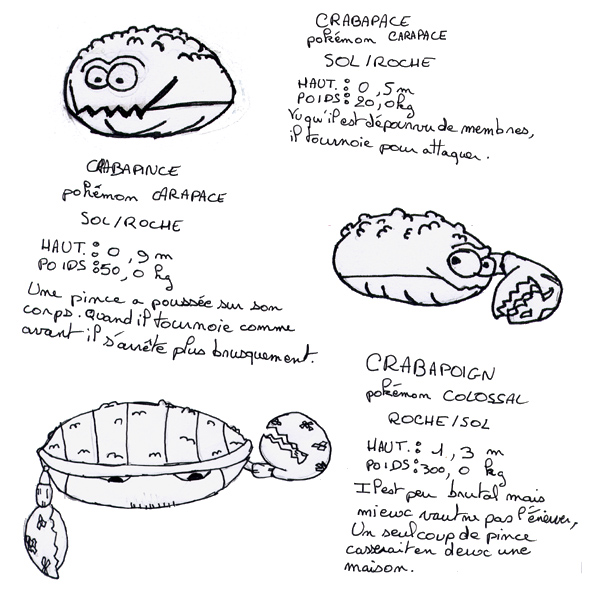 CRABAPACE
pokémon CARAPACE
SOL/ROCHE
HAUT. : 0,5 m
POIDS : 20,0 kg
Vu qu'il est dépourvu de membres,
il tournoie pour attaquer.
CRABAPINCE
pokémon CARAPACE
SOL/ROCHE
HAUT. : 0,9 m
POIDS : 50,0 kg
Une pince a poussée sur son
corps. Quand il tournoie comme
avant il s'arrête plus brusquement.
CRABAPOIGN
pokémon COLOSSAL
ROCHE/SOL
HAUT. : 1,3 m
POIDS : 300,0 kg
Il est peu brutal mais
mieux vaut ne pas l'énerver,
Un seul coup de pince
casserait en deux une
maison.